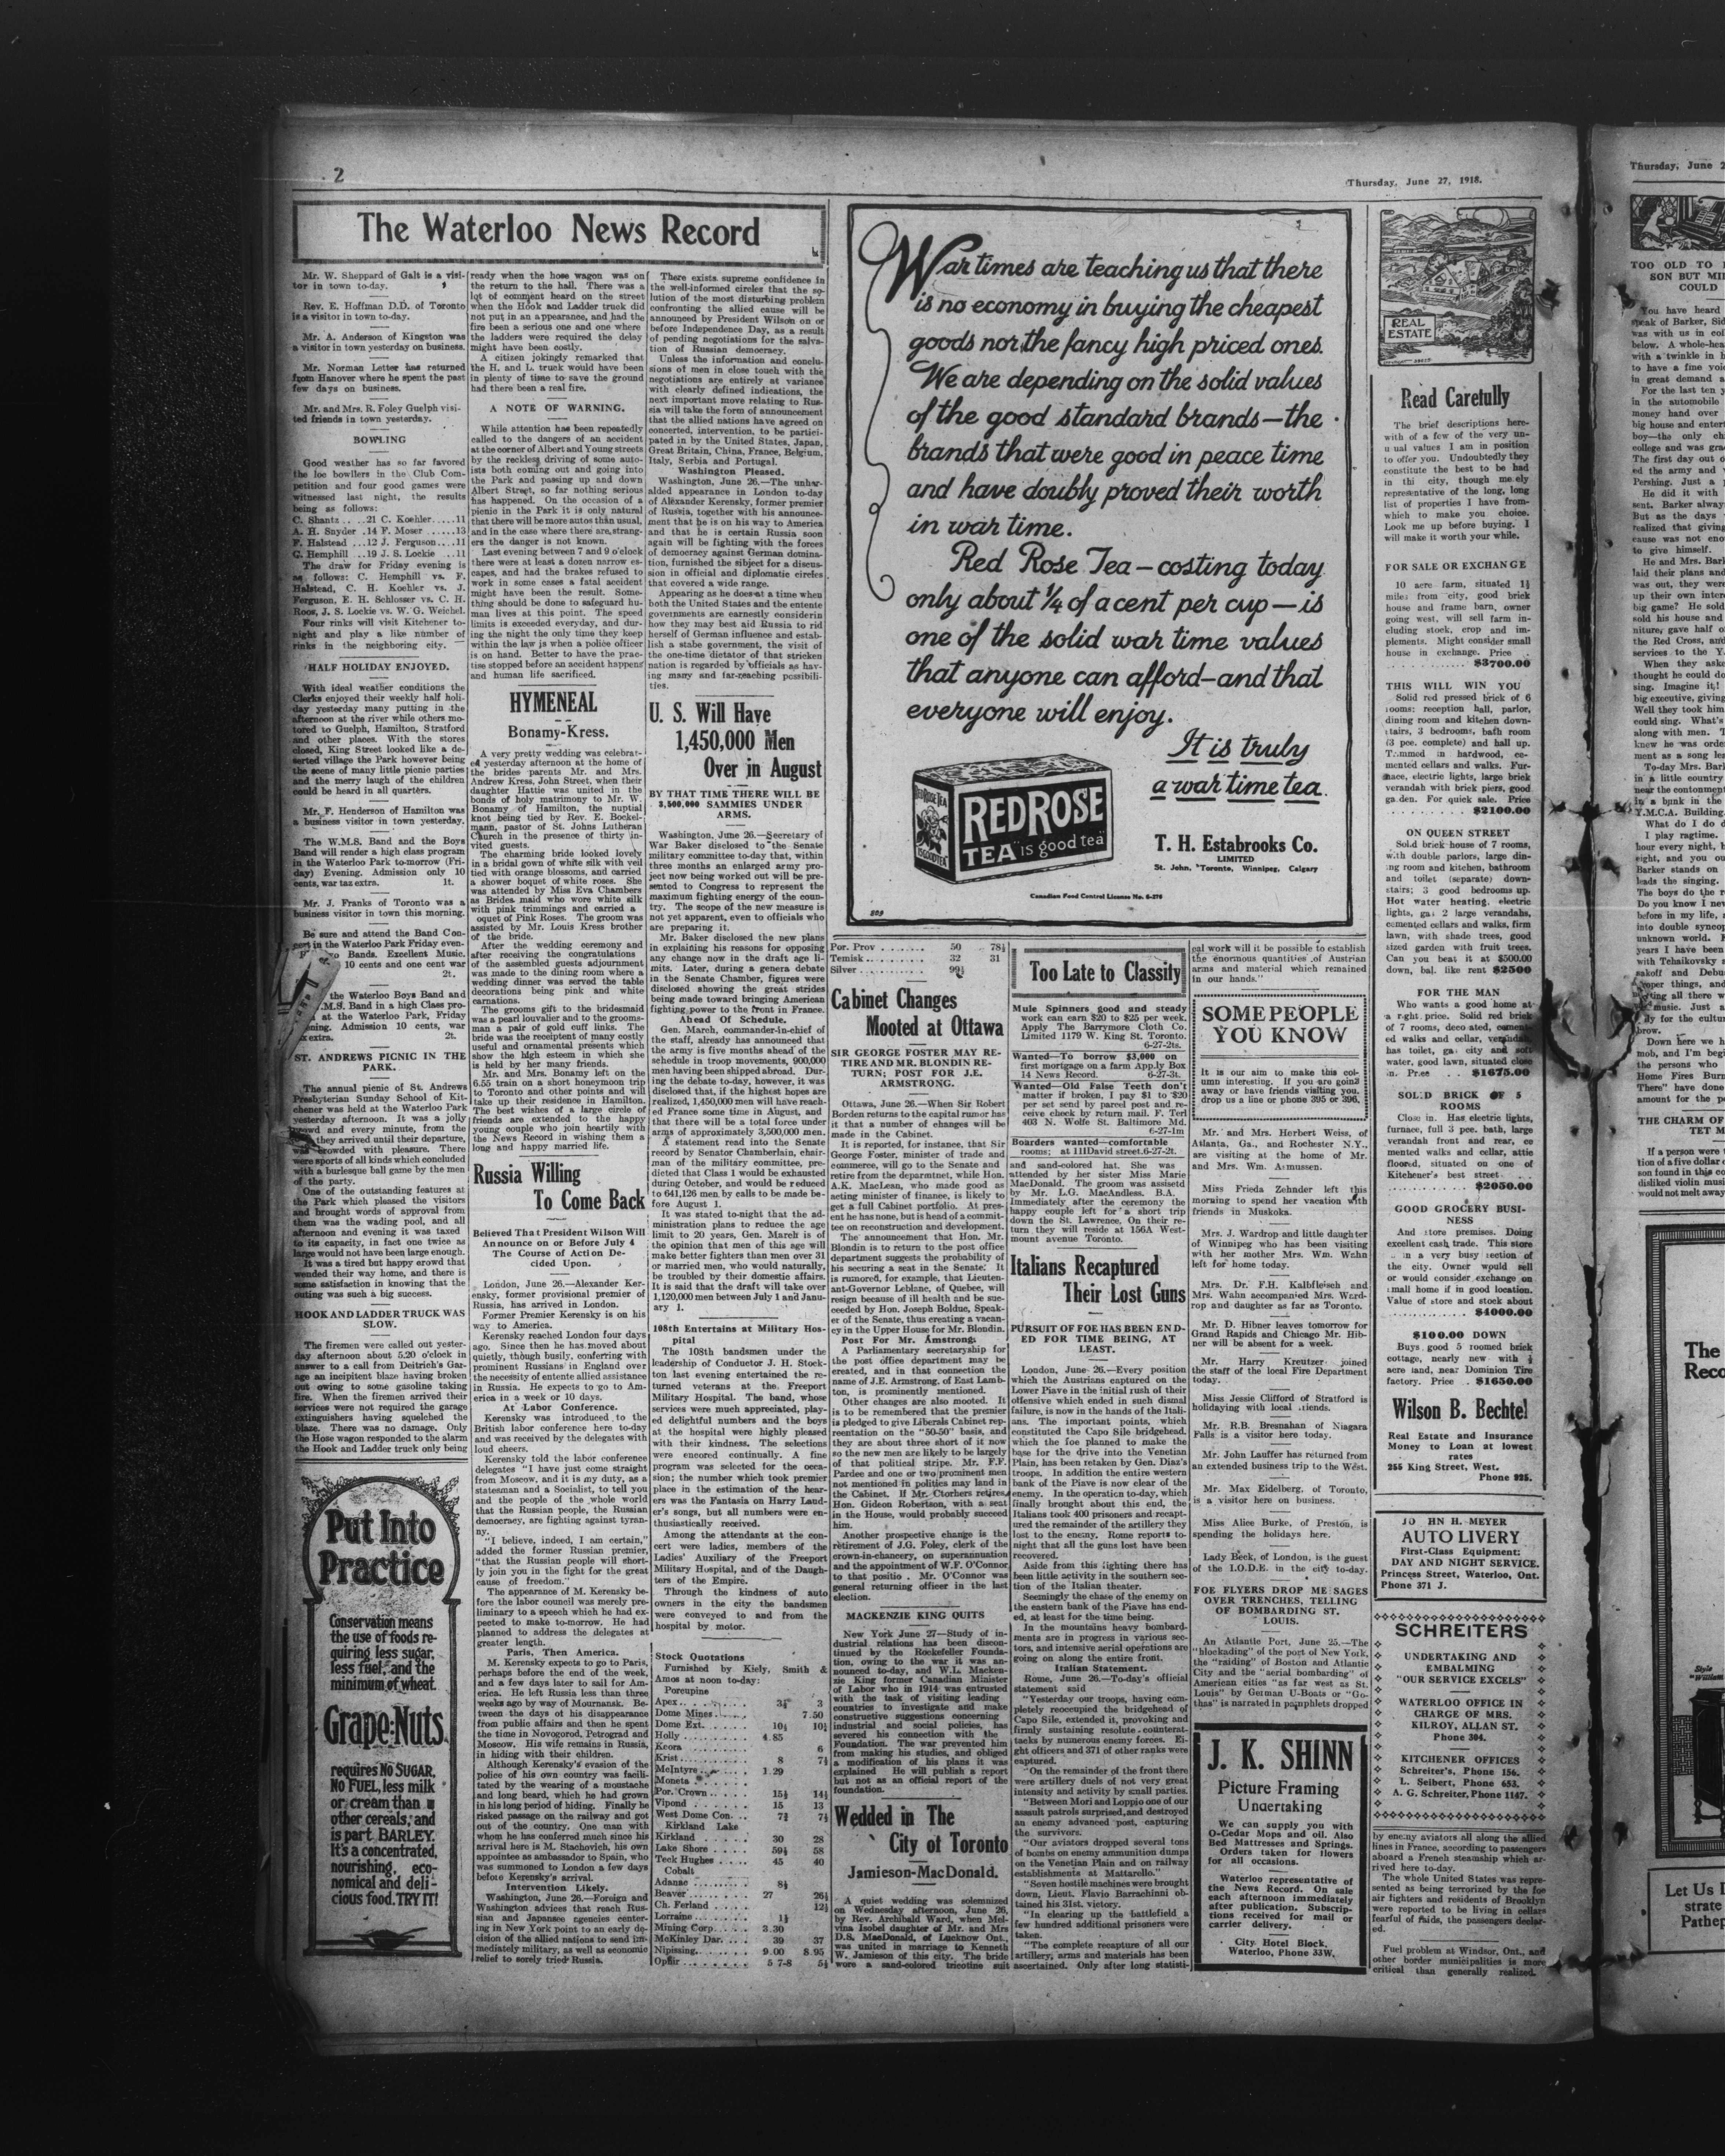 2
Thursday, June 27, 1918.
The Waterloo News Record
Mr. W. Sheppard of Galt is a visi-
tor in town to-day.
Rev. E. Hoffman D.D. of Toronto
is a visitor in town to-day.
Mr. A. Anderson of Kingston was
a visitor in town yesterday on business.
Mr. Norman Letter has returned
from Hanover where he spent the past
few days on business.
Mr. and Mrs. R. Foley Guelph visi-
ted friends in town yesterday.
BOWLING
Good weather has so far favored
the loc bowllers in the Club Com-
petition and four good games were
witnessed last night, the results
being as follows:
C. Shantz ....21 C. Koehler.....11
A. H. Snyder .14 F. Moser ......13
F. Halstead ...12 J. Ferguson....11
C. Hemphill ...19 J. S. Lockie ...11
The draw for Friday evening is
as follows: C. Hemphill vs. F.
Halstead, C. H. Koehler vs. J.
Ferguson, E. H. Schlosser vs. C. H.
Roos, J. S. Lockie vs. W. G. Weichel.
Four rinks will visit Kitchener to-
night and play a like number of
rinks in the neighboring city.
HALF HOLIDAY ENJOYED.
With ideal weather conditions the
Clerks enjoyed their weekly half holi-
day yesterday many putting in the
afternoon at the river while others mo-
tored to Guelph, Hamilton, Stratford
and other places. With the stores
closed, King Street looked like a de-
serted village the Park however being
the scene of many little picnic parties
and the merry laugh of the children
could be heard in all quarters.
Mr. F. Henderson of Hamilton was
a business visitor in town yesterday.
The W.M.S. Band and the Boys
Band will render a high class program
in the Waterloo Park to-morrow (Fri-
day) Evening. Admission only 10
cents, war tax extra. 1t.
Mr. J. Franks of Toronto was a
business visitor in town this morning.
Be sure and attend the Band Con-
cert in the Waterloo Park Friday even-
Bands. Excellent Music.
10 cents and one cent war
2t.
the Waterloo Boys Band and
M.S. Band in a high Class pro-
at the Waterloo Park, Friday
Admission 10 cents, war
extra. 2t.
ST. ANDREWS PICNIC IN THE
PARK.
The annual picnic of St. Andrews
Presbyterian Sunday School of Kit-
chener was held at the Waterloo Park
yesterday afternoon. It was a jolly
crowd and every minute, from the
they arrived until their departure,
was crowded with pleasure. There
were sports of all kinds which concluded
with a burlesque ball game by the men
of the party.
One of the outstanding features at
the Park which pleased the visitors
and brought words of approval from
them was the wading pool, and all
afternoon and evening it was taxed
to its capacity, in fact one twice as
large would not have been large enough.
It was a tired but happy crowd that
wended their way home, and there is
some satisfaction in knowing that the
outing was such a big success.
HOOK AND LADDER TRUCK WAS
SLOW.
The firemen were called out yester-
day afternoon about 5.20 o'clock in
answer to a call from Deitrich's Gar-
age an incipient blaze having broken
out owing to some gasoline taking
fire. When the firemen arrived their
services were not required the garage
extinguishers having squelched the
blaze. There was no damage. Only
the Hose wagon responded to the alarm
the Hook and Ladder truck only being
Put Into
Practice
Conservation means
the use of foods re-
quiring less sugar,
less fuel, and the
minimum of wheat.
Grape-Nuts
requires NO SUGAR,
NO FUEL, less milk
or cream than
other cereals; and
is part BARLEY.
It's a concentrated,
nourishing, eco-
nomical and deli-
cious food. TRY IT!
ready when the hose wagon was on
the return to the hall. There was a
lot of comment heard on the street
when the Hook and Ladder truck did
not put in an appearance, and had the
fire been a serious one and one where
the ladders were required the delay
might have been costly.
A citizen jokingly remarked that
the H. and L. truck would have been
in plenty of time to save the ground
had there been a real fire.
A NOTE OF WARNING.
While attention has been repeatedly
called to the dangers of an accident
at the corner of Albert and Young streets
by the reckless driving of some auto-
ists both coming out and going into
the Park and passing up and down
Albert Street, so far nothing serious
has happened. On the occasion of a
picnic in the Park it is only natural
that there will be more autos than usual,
and in the case where there are strang-
ers the danger is not known.
Last evening between 7 and 9 o'clock
there were at least a dozen narrow es-
capes, and had the brakes refused to
work in some cases a fatal accident
might have been the result. Some-
thing should be done to safeguard hu-
man lives at this point. The speed
limits is exceeded everyday, and dur-
ing the night the only time they keep
within the law is when a police officer
is on hand. Better to have the prac-
tise stopped before an accident happens
and human life sacrificed.
HYMENEAL
Bonamy-Kress.
A very pretty wedding was celebrat-
ed yesterday afternoon at the home of
the brides parents Mr. and Mrs.
Andrew Kress, John Street, when their
daughter Hattie was united in the
bonds of holy matrimony to Mr. W.
Bonamy of Hamilton, the nuptial
knot being tied by Rev. E. Bockel-
mann, pastor of St. Johns Lutheran
Church in the presence of thirty in-
vited guests.
The charming bride looked lovely
in a bridal gown of white silk with veil
tied with orange blossoms, and carried
a shower boquet of white roses. She
was attended by Miss Eva Chambers
as Brides maid who wore white silk
with pink trimmings and carried a
oquet of Pink Roses. The groom was
assisted by Mr. Louis Kress brother
of the bride.
After the wedding ceremony and
after receiving the congratulations
of the assembled guests adjournment
was made to the dining room where a
wedding dinner was served the table
decorations being pink and white
carnations.
The grooms gift to the bridesmaid
was a pearl louvalier and to the grooms-
man a pair of gold cuff links. The
bride was the receiptent of many costly
useful and ornamental presents which
show the high esteem in which she
is held by her many friends.
Mr. and Mrs. Bonamy left on the
6.55 train on a short honeymoon trip
to Toronto and other points and will
take up their residence in Hamilton.
The best wishes of a large circle of
friends are extended to the happy
young couple who join heartily with
the News Record in wishing them a
long and happy married life.
Russia Willing
To Come Back
Believed Tha t President Wilson Will
Announce on or Before July 4
The Course of Action De-
cided Upon.
London, June 26.—Alexander Ker-
ensky, former provisional premier of
Russia, has arrived in London.
Former Premier Kerensky is on his
way to America.
Kerensky reached London four days
ago. Since then he has moved about
quietly, though busily, conferring with
prominent Russians in England over
the necessity of entente allied assistance
in Russia. He expects to go to Am-
erica in a week or 10 days.
At Labor Conference.
Kerensky was introduced to the
British labor conference here to-day
and was received by the delegates with
loud cheers.
Kerensky told the labor conference
delegates "I have just come straight
from Moscow, and it is my duty, as a
statesman and a Socialist, to tell you
and the people of the whole world
that the Russian people, the Russian
democracy, are fighting against tyran-
ny.
"I believe, indeed, I am certain,"
added the former Russian premier,
"that the Russian people will short-
ly join you in the fight for the great
cause of freedom."
The appearance of M. Kerensky be-
fore the labor council was merely pre-
liminary to a speech which he had ex-
pected to make to-morrow. He had
planned to address the delegates at
greater length.
Paris, Then America.
M. Kerensky expects to go to Paris,
perhaps before the end of the week,
and a few days later to sail for Am-
erica. He left Russia less than three
weeks ago by way of Mourmansk. Be-
tween the days of his disappearance
from public affairs and then he spent
the time in Novogorod, Petrograd and
Moscow. His wife remains in Russia,
in hiding with their children.
Although Kerensky's evasion of the
police of his own country was facili-
tated by the wearing of a moustache
and long beard, which he had grown
in his long period of hiding. Finally he
risked passage on the railway and got
out of the country. One man with
whom he has conferred much since his
arrival here is M. Stachovich, his own
appointee as ambassador to Spain, who
was summoned to London a few days
before Kerensky's arrival.
Intervention Likely.
Washington, June 26.—Foreign and
Washington advices that reach Rus-
sian and Japansee agencies center-
ing in New York point to an early de-
cision of the allied nations to send im-
mediately military, as well as economic
relief to sorely tried Russia.
There exists supreme confidence in
the well-informed circles that the so-
lution of the most disturbing problem
confronting the allied cause will be
announced by President Wilson on or
before Independence Day, as a result
of pending negotiations for the salva-
tion of Russian democracy.
Unless the information and conclu-
sions of men in close touch with the
negotiations are entirely at variance
with clearly defined indications, the
next important move relating to Rus-
sia will take the form of announcement
that the allied nations have agreed on
concerted, intervention, to be partici-
pated in by the United States, Japan,
Great Britain, China, France, Belgium,
Italy, Serbia and Portugal.
Washington Pleased.
Washington, June 26.—The unher-
alded appearance in London to-day
of Alexander Kerensky, former premier
of Russia, together with his announce-
ment that he is on his way to America
and that he is certain Russia soon
again will be fighting with the forces
of democracy against German domina-
tion, furnished the sibject for a discus-
sion in official and diplomatic circles
that covered a wide range.
Appearing as he does at a time when
both the United States and the entente
governments are earnestly considerin
how they may best aid Russia to rid
herself of German influence and estab-
lish a stabe government, the visit of
the one-time dictator of that stricken
nation is regarded by officials as hav-
ing many and far-reaching possibili-
ties.
U. S. Will Have
1,450,000 Men
Over in August
BY THAT TIME THERE WILL BE
3,500,000 SAMMIES UNDER
ARMS.
Washington, June 26.—Secretary of
War Baker disclosed to the Senate
military committee to-day that, within
three months an enlarged army pro-
ject now being worked out will be pre-
sented to Congress to represent the
maximum fighting energy of the coun-
try. The scope of the new measure is
not yet apparent, even to officials who
are preparing it.
Mr. Baker disclosed the new plans
in explaining his reasons for opposing
any change now in the draft age li-
mits. Later, during a genera debate
in the Senate Chamber, figures were
disclosed showing the great strides
being made toward bringing American
fighting power to the front in France.
Ahead Of Schedule.
Gen. March, commander-in-chief of
the staff, already has announced that
the army is five months ahead of the
schedule in troop movements, 900,000
men having been shipped abroad. Dur-
ing the debate to-day, however, it was
disclosed that, if the highest hopes are
realized, 1,450,000 men will have reach-
ed France some time in August, and
that there will be a total force under
arms of approximately 3,500,000 men.
A statement read into the Senate
record by Senator Chamberlain, chair-
man of the military committee, pre-
dicted that Class 1 would be exhausted
during October, and would be reduced
to 641,126 men by calls to be made be-
fore August 1.
It was stated to-night that the ad-
ministration plans to reduce the age
limit to 20 years, Gen. March is of
the opinion that men of this age will
make better fighters than men over 31
or married men, who would naturally,
be troubled by their domestic affairs.
It is said that the draft will take over
1,120,000 men between July 1 and Janu-
ary 1.
108th Entertains at Military Hos-
pital
The 108th bandsmen under the
leadership of Conductor J. H. Stock-
ton last evening entertained the re-
turned veterans at the Freeport
Military Hospital. The band, whose
services were much appreciated, play-
ed delightful numbers and the boys
at the hospital were highly pleased
with their kindness. The selections
were encored continually. A fine
program was selected for the occa-
sion; the number which took premier
place in the estimation of the hear-
ers was the Fantasia on Harry Laud-
er's songs, but all numbers were en-
thusiastically received.
Among the attendants at the con-
cert were ladies, members of the
Ladies' Auxiliary of the Freeport
Military Hospital, and of the Daugh-
ters of the Empire.
Through the kindness of auto
owners in the city the bandsmen
were conveyed to and from the
hospital by motor.
Stock Quotations
Furnished by Kiely, Smith &
Amos at noon to-day:
Porcupine
Apex 3¼ 3
Dome Mines 7.50
Dome Ext. 10½ 10¼
Holly 4.85
Keora 6
Krist 8 7½
McIntyre 1.29
Moneta
Por. Crown 15½ 14½
Vipond 15 13
West Dome Con. 7¾ 7½
Kirkland Lake
Kirkland 30 28
Lake Shore 59½ 58
Teck Hughes 45 40
Cobalt
Adanac 8½
Beaver 27 26½
Ch. Ferland 12½
Lorraine 1½
Mining Corp. 3.30
McKinley Dar. 39 37
Nipissing 9.00 8.95
Ophir 5 7-8 5½
War times are teaching us that there
is no economy in buying the cheapest
goods nor the fancy high priced ones.
We are depending on the solid values
of the good standard brands—the
brands that were good in peace time
and have doubly proved their worth
in war time.
Red Rose Tea—costing today
only about ¼ of a cent per cup—is
one of the solid war time values
that anyone can afford—and that
everyone will enjoy.
It is truly
a war time tea.
RED ROSE TEA
IS GOOD TEA
REDROSE
TEA "is good tea"
T. H. Estabrooks Co.
LIMITED
St. John, Toronto, Winnipeg, Calgary
Canadian Food Control License No. 6-276
Por. Prov 50 78½
Temisk 32 31
Silver 99½
Cabinet Changes
Mooted at Ottawa
SIR GEORGE FOSTER MAY RE-
TIRE AND MR. BLONDIN RE-
TURN; POST FOR J.E.
ARMSTRONG.
Ottawa, June 26.—When Sir Robert
Borden returns to the capital rumor has
it that a number of changes will be
made in the Cabinet.
It is reported, for instance, that Sir
George Foster, minister of trade and
commerce, will go to the Senate and
retire from the deparmtnet, while Hon.
A.K. MacLean, who made good as
acting minister of finance, is likely to
get a full Cabinet portfolio. At pres-
ent he has none, but is head of a commit-
tee on reconstruction and development.
The announcement that Hon. Mr.
Blondin is to return to the post office
department suggests the probability of
his securing a seat in the Senate. It
is rumored, for example, that Lieuten-
ant-Governor Leblanc, of Quebec, will
resign because of ill health and be suc-
ceeded by Hon. Joseph Boldue, Speak-
er of the Senate, thus creating a vacan-
cy in the Upper House for Mr. Blondin.
Post For Mr. Amstrong.
A Parliamentary secretaryship for
the post office department may be
created, and in that connection the
name of J.E. Armstrong, of East Lamb-
ton, is prominently mentioned.
Other changes are also mooted. It
is to be remembered that the premier
is pledged to give Liberals Cabinet rep-
reentation on the "50-50" basis, and
they are about three short of it now
so the new men are likely to be largely
of that political stripe. Mr. F.F.
Pardee and one or two prominent men
not mentioned in politics may land in
the Cabinet. If Mr. Ctorhers retires,
Hon. Gideon Robertson, with a seat
in the House, would probably succeed
him.
Another prospective change is the
retirement of J.G. Foley, clerk of the
crown-in-chancery, on superannuation
and the appointment of W.F. O'Connor
to that positio . Mr. O'Connor was
general returning officer in the last
election.
MACKENZIE KING QUITS
New York June 27—Study of in-
dustrial relations has been discon-
tinued by the Rockefeller Founda-
tion, owing to the war it was an-
nounced to-day, and W.L. Macken-
zie King former Canadian Minister
of Labor who in 1914 was entrusted
with the task of visiting leading
countries to investigate and make
constructive suggestions concerning
industrial and social policies, has
severed his connection with the
Foundation. The war prevented him
from making his studies, and obliged
a modification of his plans it was
explained He will publish a report
but not as an official report of the
foundation.
Wedded in The
City of Toronto
Jamieson-MacDonald.
A quiet wedding was solemnized
on Wednesday afternoon, June 26,
by Rev. Archibald Ward, when Mel-
vina Isobel daughter of Mr. and Mrs
D.S. MacDonald, of Lucknow Ont.,
was united in marriage to Kenneth
W. Jamieson of this city. The bride
wore a sand-colored tricotine suit
Too Late to Classify
Mule Spinners good and steady
work can earn $20 to $25 per week.
Apply The Barrymore Cloth Co.
Limited 1179 W. King St. Toronto.
6-27-2ts.
Wanted—To borrow $3,000 on
first mortgage on a farm App.ly Box
14 News Record. 6-27-3t.
Wanted—Old False Teeth don't
matter if broken, I pay $1 to $20
per set send by parcel post and re-
ceive check by return mail. F. Terl
403 N. Wolfe St. Baltimore Md.
6-27-1m
Boarders wanted—comfortable
rooms; at 111David street.6-27-2t.
and sand-colored hat. She was
attended by her sister Miss Marie
MacDonald. The groom was assisetd
by Mr. L.G. MacAndless. B.A.
Immediately after the ceremony the
happy couple left for a short trip
down the St. Lawrence, On their re-
turn they will reside at 156A West-
mount avenue Toronto.
Italians Recaptured
Their Lost Guns
PURSUIT OF FOE HAS BEEN END-
ED FOR TIME BEING, AT
LEAST.
London, June 26.—Every position
which the Austrians captured on the
Lower Piave in the initial rush of their
offensive which ended in such dismal
failure, is now in the hands of the Itali-
ans. The important points, which
constituted the Capo Sile bridgehead.
which the foe planned to make the
base for the drive into the Venetian
Plain, has been retaken by Gen. Diaz's
troops. In addition the entire western
bank of the Piave is now clear of the
enemy. In the operation to-day, which
finally brought about this end, the
Italians took 400 prisoners and recapt-
ured the remainder of the artillery they
lost to the enemy. Rome reports to-
night that all the guns lost have been
recovered.
Aside from this fighting there has
been little activity in the southern sec-
tion of the Italian theater.
Seemingly the chase of the enemy on
the eastern bank of the Piave has end-
ed, at least for the time being.
In the mountains heavy bombard-
ments are in progress in various sec-
tors, and intensive aerial operations are
going on along the entire front.
Italian Statement.
Rome, June 26.—To-day's official
statement said
"Yesterday our troops, having com-
pletely reoccupied the bridgehead of
Capo Sile, extended it, provoking and
firmly sustaining resolute counterat-
tacks by numerous enemy forces. Ei-
ght officers and 371 of other ranks were
captured.
"On the remainder of the front there
were artillery duels of not very great
intensity and activity by small parties.
"Between Mori and Loppio one of our
assault patrols surprised, and destroyed
an enemy advanced post, capturing
the survivors.
"Our aviators dropped several tons
of bombs on enemy ammunition dumps
on the Venetian Plain and on railway
establishments at Mattarello."
"Seven hostile machines were brought
down, Lieut. Flavio Barrachinni ob-
tained his 31st. victory.
"In clearing up the battlefield a
few hundred additional prisoners were
taken.
"The complete recapture of all our
artillery, arms and materials has been
ascertained. Only after long statisti-
cal work will it be possible to establish
the enormous quantities of Austrian
arms and material which remained
in our hands."
SOME PEOPLE
YOU KNOW
It is our aim to make this col-
umn interesting. If you are going
away or have friends visiting you,
drop us a line or phone 395 or 396.
Mr. and Mrs. Herbert Weiss, of
Atlanta, Ga., and Rochester N.Y.,
are visiting at the home of Mr.
and Mrs. Wm. Asmussen.
Miss Frieda Zehnder left this
morning to spend her vacation with
friends in Muskoka.
Mrs. J. Wardrop and little daughter
of Winnipeg who has been visiting
with her mother Mrs. Wm. Wahn
left for home today.
Mrs. Dr. F.H. Kalbfleisch and
Mrs. Wahn accompanied Mrs. Ward-
rop and daughter as far as Toronto.
Mr. D. Hibner leaves tomorrow for
Grand Rapids and Chicago Mr. Hib-
ner will be absent for a week.
Mr. Harry Kreutzer joined
the staff of the local Fire Department
today.
Miss Jessie Clifford of Stratford is
holidaying with local friends.
Mr. R.B. Bresnahan of Niagara
Falls is a visitor here today.
Mr. John Lauffer has returned from
an extended business trip to the West.
Mr. Max Eidelberg, of Toronto,
is a visitor here on business.
Miss Alice Burke, of Preston, is
spending the holidays here.
Lady Beck, of London, is the guest
of the I.O.D.E. in the city to-day.
FOE FLYERS DROP MESSAGES
OVER TRENCHES, TELLING
OF BOMBARDING ST.
LOUIS.
An Atlantic Port, June 25.—The
"blockading" of the port of New York,
the "raiding" of Boston and Atlantic
City and the "aerial bombarding" of
American cities "as far west as St.
Louis" by German U-Boats or "Go-
thas" is narrated in pamphlets dropped
J. K. SHINN
Picture Framing
Undertaking
We can supply you with
O-Cedar Mops and oil. Also
Bed Mattresses and Springs.
Orders taken for flowers
for all occasions.
Waterloo representative of
the News Record. On sale
each afternoon immediately
after publication. Subscrip-
tions received for mail or
carrier delivery.
City Hotel Block,
Waterloo, Phone 33W.
REAL
ESTATE
Read Carefully
The brief descriptions here-
with of a few of the very un-
u ual values I am in position
to offer you. Undoubtedly they
constitute the best to be had
in thi city, though me ely
representative of the long, long
list of properties I have from-
which to make you choice.
Look me up before buying. I
will make it worth your while.
FOR SALE OR EXCHANGE
10 acre farm, situated 1½
miles from city, good brick
house and frame barn, owner
going west, will sell farm in-
cluding stock, crop and im-
plements. Might consider small
house in exchange. Price
$3700.00
THIS WILL WIN YOU
Solid red pressed brick of 6
rooms: reception hall, parlor,
dining room and kitchen down-
stairs, 3 bedrooms, bath room
(3 pce. complete) and hall up.
Trimmed in hardwood, ce-
mented cellars and walks. Fur-
nace, electric lights, large brick
verandah with brick piers, good
garden. For quick sale. Price
$2100.00
ON QUEEN STREET
Solid brick house of 7 rooms,
with double parlors, large din-
ing room and kitchen, bathroom
and toilet (separate) down-
stairs; 3 good bedrooms up.
Hot water heating, electric
lights, gas 2 large verandahs,
cemented cellars and walks, firm
lawn, with shade trees, good
sized garden with fruit trees.
Can you beat it at $500.00
down, bal. like rent $2500
FOR THE MAN
Who wants a good home at
a right price. Solid red brick
of 7 rooms, decorated, cement-
ed walks and cellar, verandah,
has toilet, gas city and soft
water, good lawn, situated close
in. Price $1675.00
SOLID BRICK OF 5
ROOMS
Close in. Has electric lights,
furnace, full 3 pce. bath, large
verandah front and rear, ce
mented walks and cellar, attic
floored, situated on one of
Kitchener's best street
$2050.00
GOOD GROCERY BUSI-
NESS
And store premises. Doing
excellent cash trade. This store
in a very busy section of
the city. Owner would sell
or would consider exchange on
small home if in good location.
Value of store and stock about
$4000.00
$100.00 DOWN
Buys good 5 roomed brick
cottage, nearly new with ¼
acre land, near Dominion Tire
factory. Price $1650.00
Wilson B. Bechtel
Real Estate and Insurance
Money to Loan at lowest
rates
255 King Street, West.
Phone 925.
JO HN H. MEYER
AUTO LIVERY
First-Class Equipment:
DAY AND NIGHT SERVICE.
Princess Street, Waterloo, Ont.
Phone 371 J.
SCHREITERS
UNDERTAKING AND
EMBALMING
"OUR SERVICE EXCELS"
WATERLOO OFFICE IN
CHARGE OF MRS.
KILROY, ALLAN ST.
Phone 304.
KITCHENER OFFICES
Schreiter's, Phone 156.
L. Seibert, Phone 653.
A. G. Schreiter, Phone 1147.
by enemy aviators all along the allied
lines in France, according to passengers
aboard a French steamship which ar-
rived here to-day.
The whole United States was repre-
sented as being terrorized by the foe
air fighters and residents of Brooklyn
were reported to be living in cellars
fearful of raids, the passengers declar-
ed.
Fuel problem at Windsor, Ont., and
other border municipalities is more
critical than generally realized.
Thursday, June 2
TOO OLD TO
SON BUT
COULD
You have heard
speak of Barker,
was with us in
below. A whole-
with a twinkle in
to have a fine
in great demand
For the last ten
in the automobile
money hand over
big house and
boy—the only
college and was
The first day out
ed the army and
Pershing. Just a
He did it with
sent. Barker
But as the days
realized that giving
cause was not
to give himself.
He and Mrs.
laid their plans and
was out, they were
up their own
big game? He sold
sold his house and
niture, gave half of
the Red Cross, and
services to the Y.
When they
thought he could do
sing. Imagine it!
big executive, giving
Well they took him
could sing. What's
along with men.
knew he was
ment as a song
To-day Mrs.
in a little country
near the cantonment
in a bunk in the
Y.M.C.A. Building.
What do I do
I play ragtime.
hour every night,
eight, and you
Barker stands on
leads the singing.
The boys do the
Do you know I
before in my life,
into double
unknown world.
years I have been
with Tchaikovsky
sakoff and
proper things, and
all there
music. Just a
for the
brow.
Down here we
mob, and I'm
the persons who
Home Fires
There" have done
amount for the
THE CHARM OF
If a person were
tion of a five dollar
son found in this
disliked violin
would not melt away
The
Reco
Style
"William
Let Us
strate
Pathep